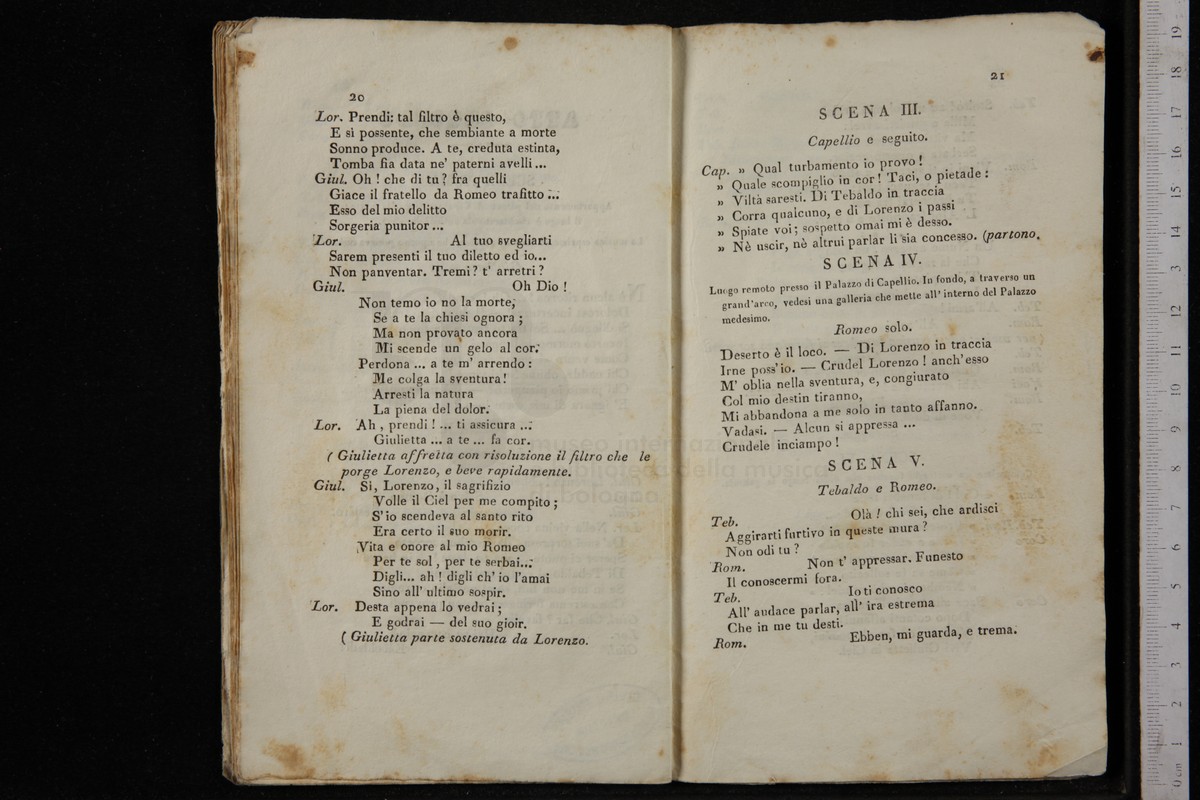 20
Lor. Prendi: tal filtro è questo,
E sì possente, che sembiante a morte
Sonno produce. A te, creduta estinta,
Tomba fia data ne' paterni avelli ...
Giul. Oh ! che di tu ? fra quelli
Giace il fratello da Romeo trafitto ...
Esso del mio delitto
Sorgeria punitor ...
Lor. Al tuo svegliarti
Sarem presenti il tuo diletto ed io...
Non panventar. Tremi ? t' arretri ?
Giul. Oh Dio !
Non temo io no la morte,
Se a te la chiesi ognora ;
Ma non provato ancora
Mi scende un gelo al cor.
Perdona ... a te m' arrendo :
Me colga la sventura!
Arresti la natura
La piena del dolor.
Lor. Ah , prendi ! ... ti assicura ...
Giulietta ... a te ... fa cor.
( Giulietta affretta con risoluzione il filtro che le
porge Lorenzo, e beve rapidamente.
Giul. Sì, Lorenzo, il sagrifizio
Volle il Ciel per me compito ;
S' io scendeva al santo rito
Era certo il suo morir.
Vita e onore al mio Romeo
Per te sol , per te serbai...
Digli... ah ! digli ch' io l'amai
Sino all' ultimo sospir.
Lor. Desta appena lo vedrai ;
E godrai — del suo gioir.
( Giulietta parte sostenuta da Lorenzo.
21
SCENA III.
Capellio e seguito.
Cap. » Qual turbamento io provo !
» Quale scompiglio in cor ! Taci, o pietade :
» Viltà saresti. Di Tebaldo in traccia
» Corra qualcuno, e di Lorenzo i passi
» Spiate voi ; sospetto omai mi è desso.
» Nè uscir, nè altrui parlar li sia concesso. (partono.
SCENA IV.
Luogo remoto presso il Palazzo di Capellio. In fondo, a traverso un
grand'arco, vedesi una galleria che mette all' interno del Palazzo
medesimo.
Romeo solo.
Deserto è il loco. — Di Lorenzo in traccia
Irne poss' io. — Crudel Lorenzo ! anch' esso
M' oblia nella sventura, e, congiurato
Col mio destin tiranno,
Mi abbandona a me solo in tanto affanno.
Vadasi. — Alcun si appressa ...
Crudele inciampo !
SCENA V.
Tebaldo e Romeo.
Teb. Olà ! chi sei, che ardisci
Aggirarti furtivo in queste mura ?
Non odi tu ?
Rom. Non t' appressar. Funesto
Il conoscermi fora.
Teb. Io ti conosco
All' audace parlar, all' ira estrema
Che in me tu desti.
Rom. Ebben, mi guarda, e trema.
museo internazionale
biblioteca della musica
bologna
0 cm 1 2 3 4 5 6 7 8 9 10 11 12 13 14 15 16 17 18 19